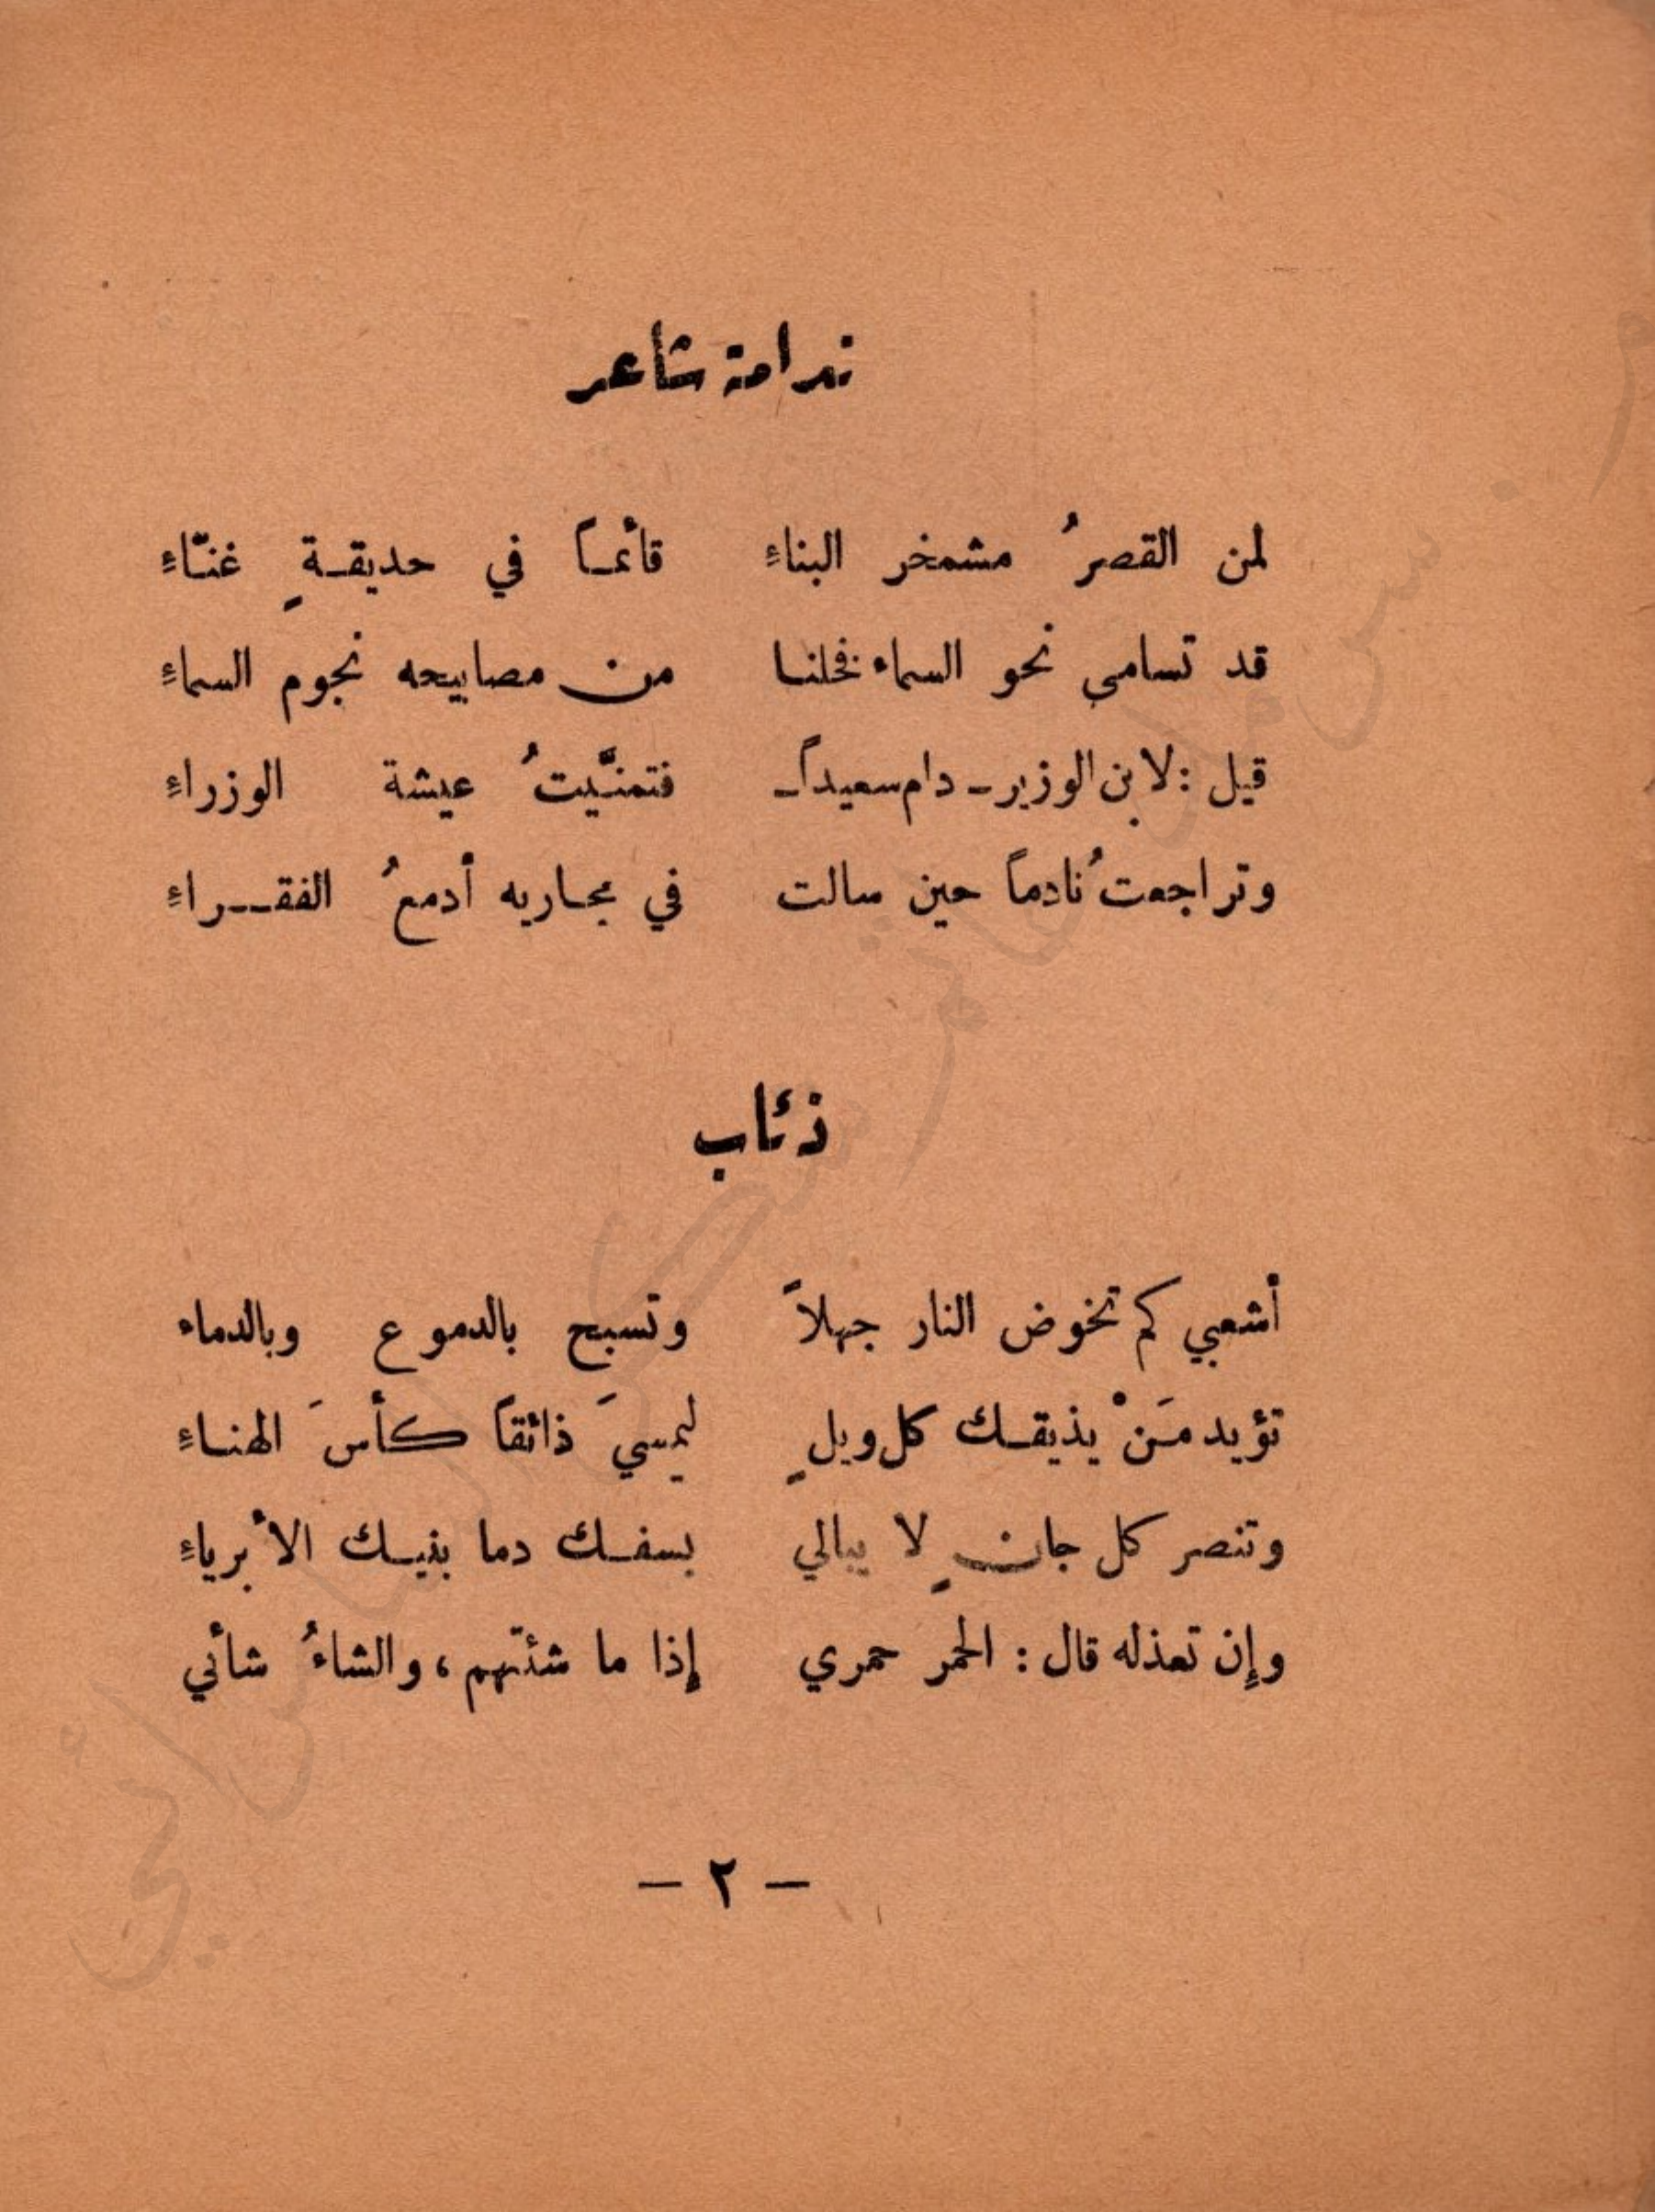 ندامة شاعر
لمن القصرُ مشمخر البناءِ قائماً في حديقةٍ غنّاءِ
قد تسامى نحو السماء فخلنا من مصابيحه نجوم السماءِ
قيل : لابن الوزير - دام سعيداً - فتمنَّيتُ عيشة الوزراءِ
وتراجعتُ نادماً حين سالت في مجاريه أدمعُ الفقراءِ
ذئاب
أشعبي كم تخوض النار جهلاً وتسبح بالدموع وبالدماء
تؤيد مَنْ يذيقك كل ويلٍ ليمسيَ ذائقاً كأسَ الهناءِ
وتنصر كل جانٍ لا يبالي بسفك دما بنيك الأبرياءِ
وإن تعذله قال : الحمر حمري إذا ما شئتهم ، والشاءُ شائي
- ٢ -